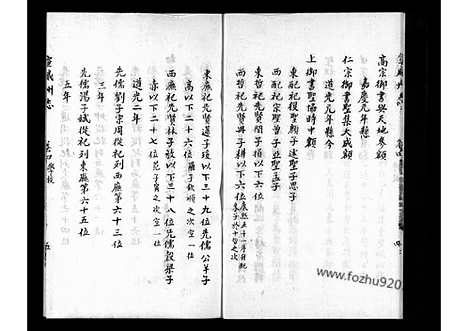 高宗御書與天地參額
嘉慶元年縣
仁宗御書聖集大成額
道光元年縣今
上御書聖協時中額
東配祀復聖顏子述聖子思子
西配祀宗聖曾子亞聖孟子
東哲祀先賢閔子損以下六位
西哲祀先賢冉子耕以下六位
東廡祀先賢蘧子瑗以下三十九位先儒公羊子
赤以下二十六位
西廡祀先賢林子放以下三十八位先儒穀梁子
赤以下二十七位
道光二年
先儒劉子宗周從祀列西廡第六十三位
三年
先儒湯子斌從祀列東廡第六十五位
五年
宣威州志
卷四 學校
五
www.fozhu920.com